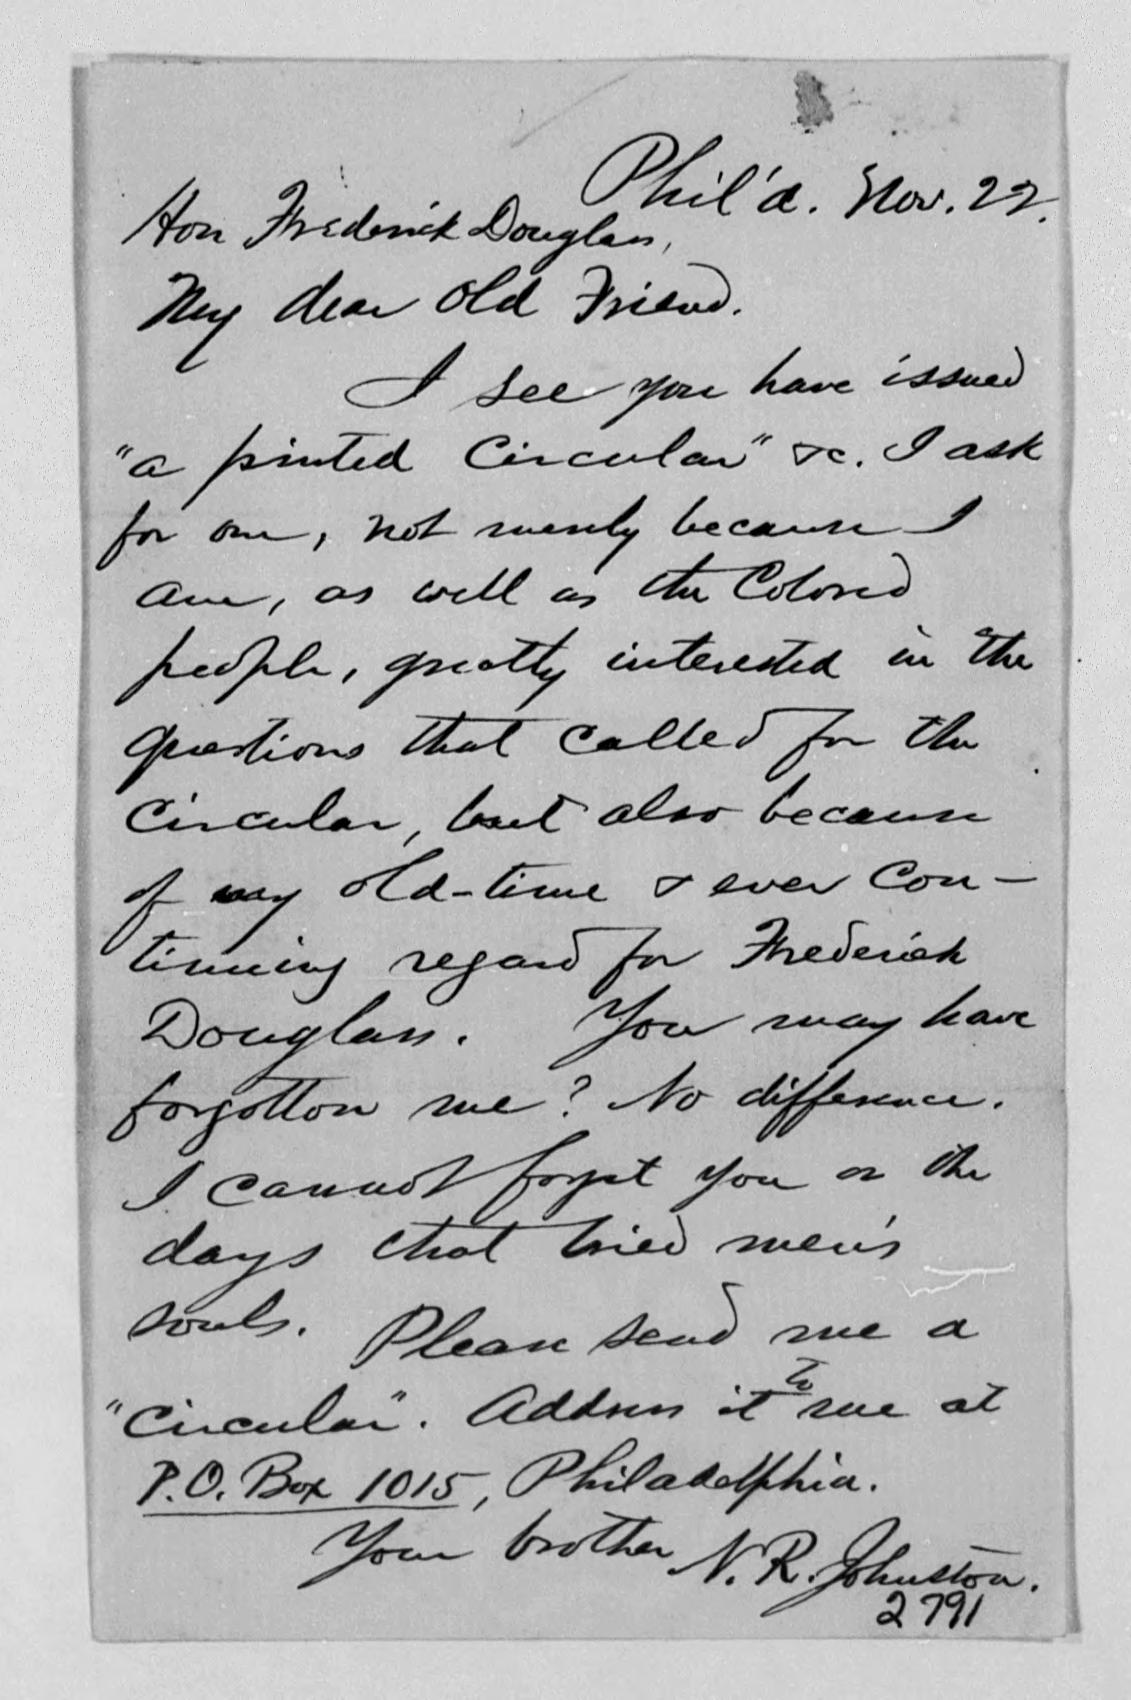 Phil'd. Nov. 22.
Hon Frederick Douglass,
My dear Old Friend.
I see you have issued
"a printed Circular" &c. I ask
for one, not merely because I
am, as well as the Colored
people, greatly interested in the
questions that called for the
Circular, but also because
of my old-time & ever con-
tinuing regard for Frederick
Douglass. You may have
forgotton me? No difference.
I cannot forget you or the
days that tried men's
souls. Please send me a
"Circular". Address it to me at
P.O. Box 1015, Philadelphia.
Your brother N. R. Johnston.
2791